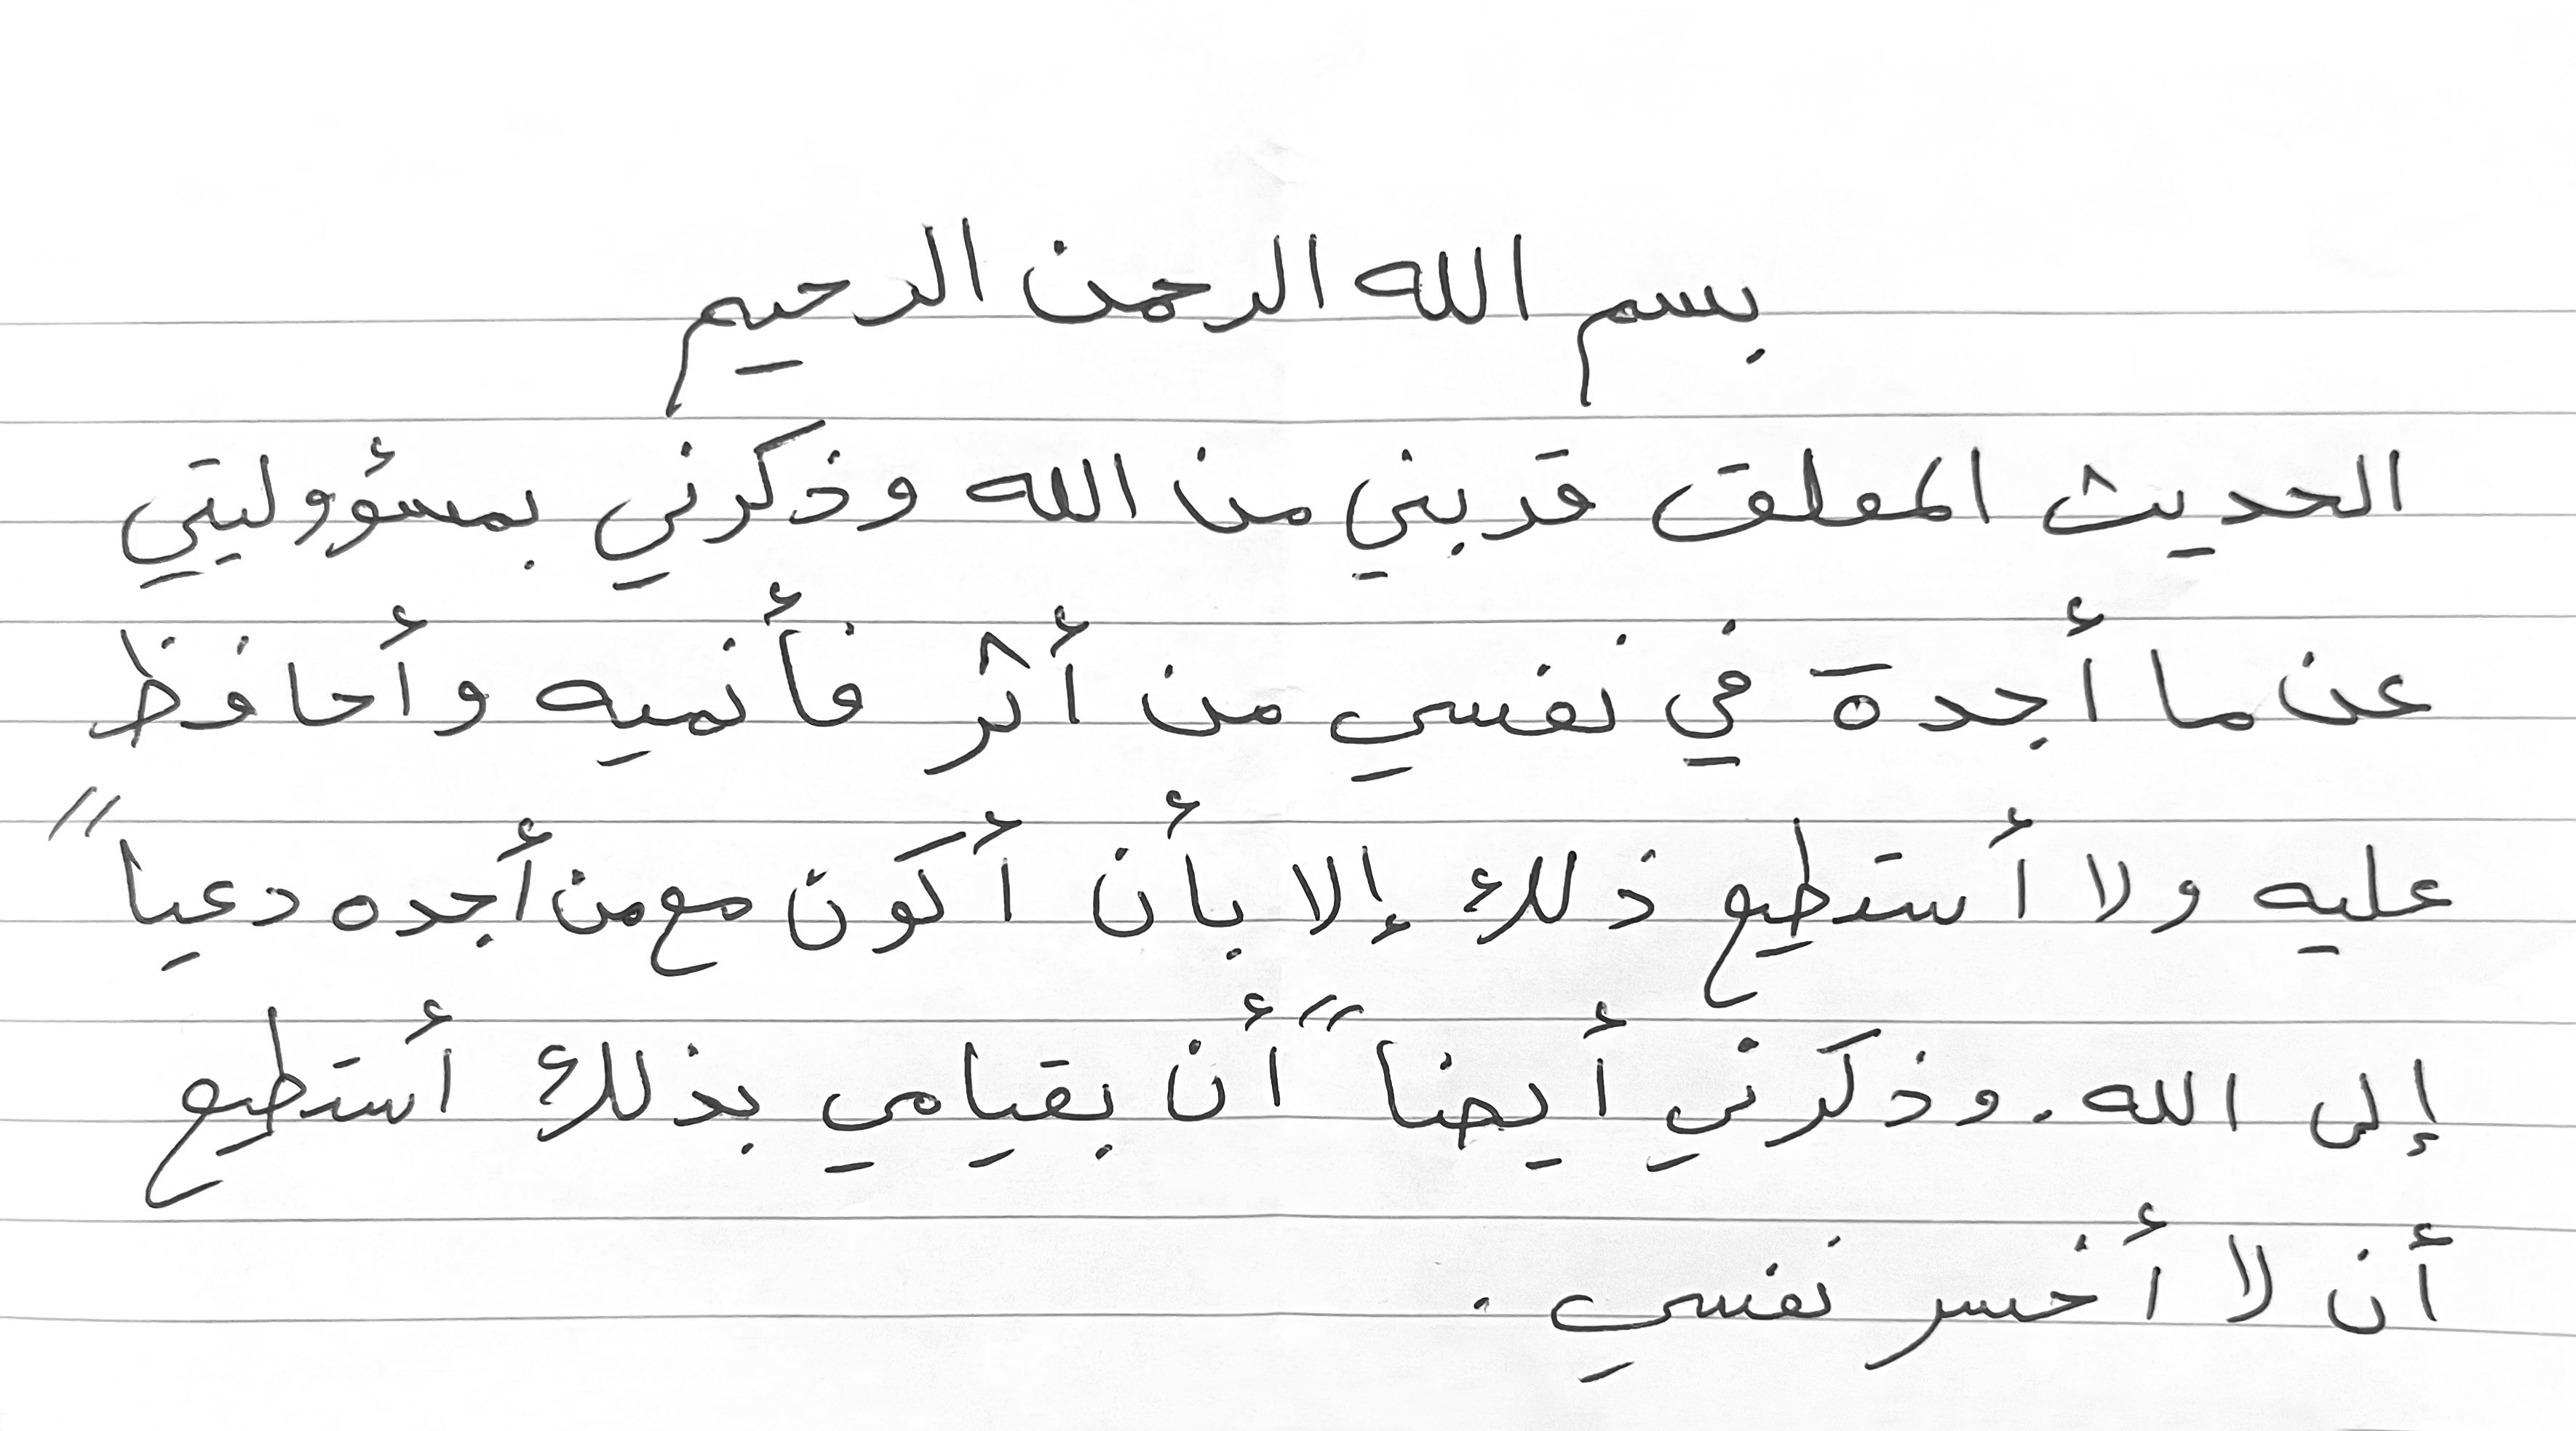 بسم الله الرحمن الرحيم
الحديث المعلق قربني من الله وذكرني بمسؤوليتي
عن ما أجدة في نفسي من أثر فأنميه وأحافظ
عليه ولا أستطيع ذلك إلا بأن أكون مع من أجده دعياً
إلى الله. وذكرني أيضاً أن بقيامي بذلك أستطيع
أن لا أخسر نفسي.